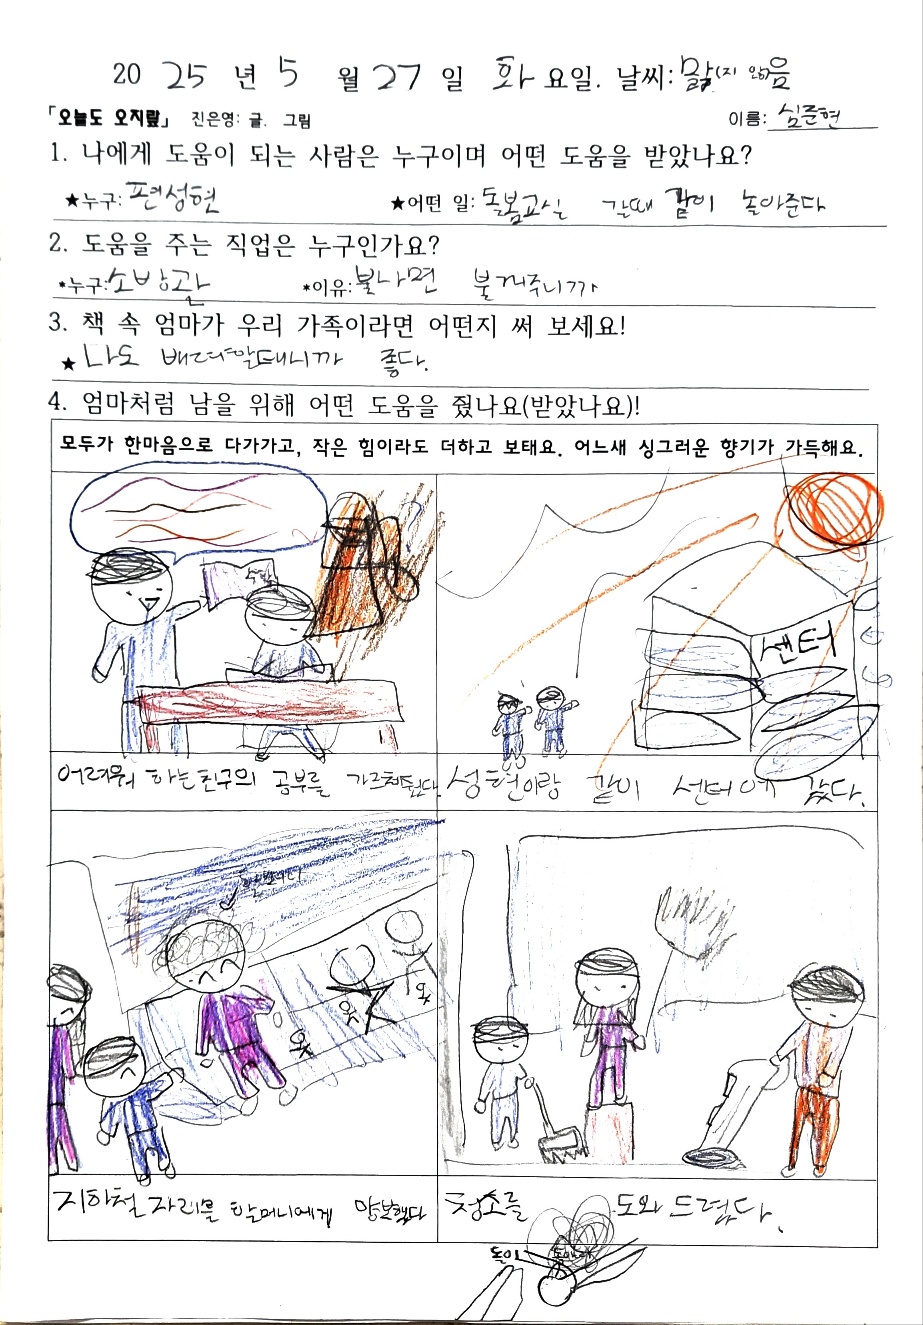 20 25 년 5 월 27 일 화 요일. 날씨: 맑(지 않)음
「오늘도 오지랖」 진은영: 글. 그림 이름: 심준현
1. 나에게 도움이 되는 사람은 누구이며 어떤 도움을 받았나요?
★누구: 편성현 ★어떤 일: 돌봄교실 갈때 같이 놀아준다
2. 도움을 주는 직업은 누구인가요?
*누구: 소방관 *이유: 불나면 불꺼주니까
3. 책 속 엄마가 우리 가족이라면 어떤지 써 보세요!
★ 나도 배려할테니까 좋다.
4. 엄마처럼 남을 위해 어떤 도움을 줬나요(받았나요)!
모두가 한마음으로 다가가고, 작은 힘이라도 더하고 보태요. 어느새 싱그러운 향기가 가득해요.
센터
어려워 하는친구의 공부를 가르쳐줬다.
성현이랑 같이 센터에 갔다.
할머니
옷
옷
옷
지하철 자리를 할머니에게 양보했다
청소를 도와 드렸다.